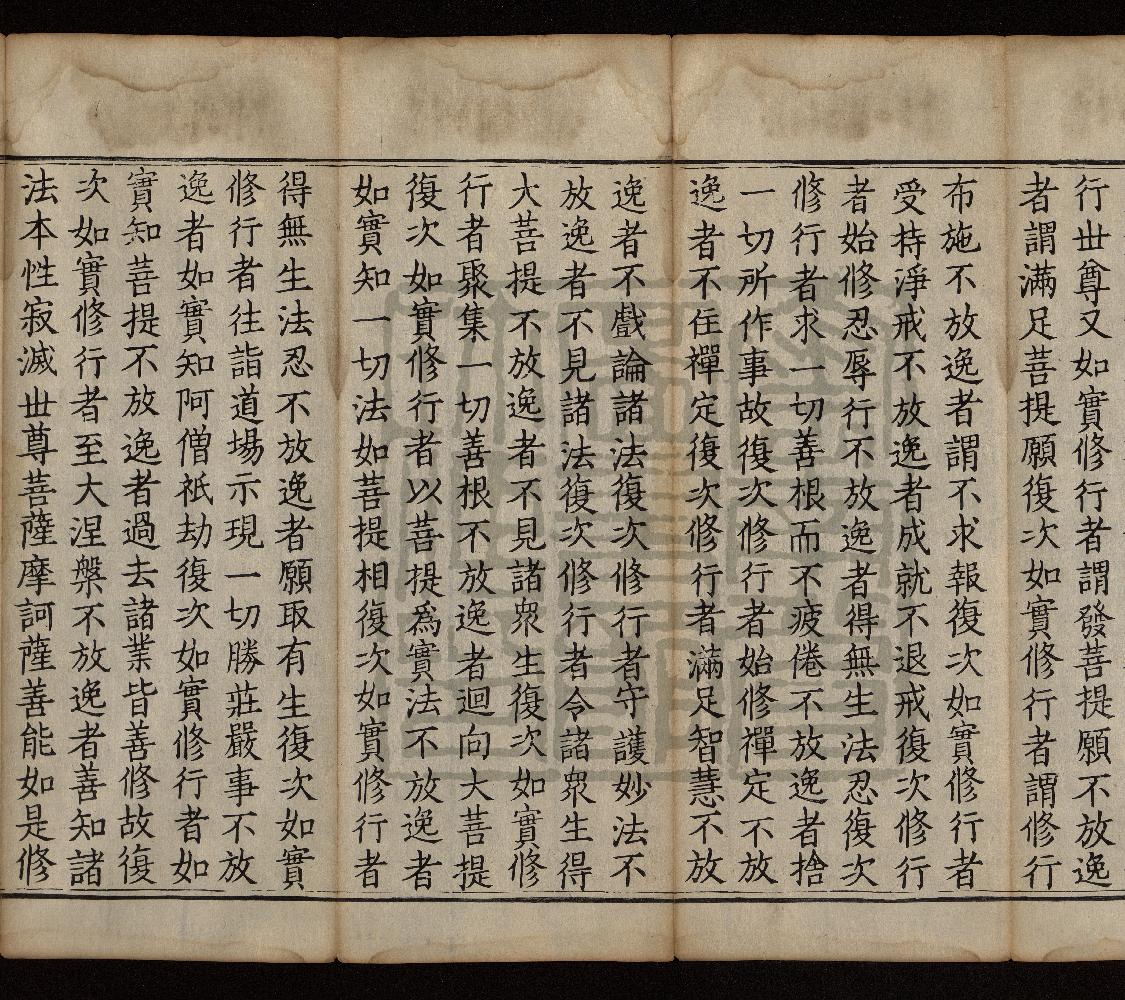 行世尊又如實修行者謂發菩提願不放逸
者謂滿足菩提願復次如實修行者謂修行
布施不放逸者謂不求報復次如實修行者
受持淨戒不放逸者成就不退戒復次修行
者始修忍辱行不放逸者得無生法忍復次
修行者求一切善根而不疲倦不放逸者捨
一切所作事故復次修行者始修禪定不放
逸者不住禪定復次修行者滿足智慧不放
逸者不戲論諸法復次修行者守護妙法不
放逸者不見諸法復次修行者令諸衆生得
大菩提不放逸者不見諸衆生復次如實修
行者聚集一切善根不放逸者迴向大菩提
復次如實修行者以菩提爲實法不放逸者
如實知一切法如菩提相復次如實修行者
得無生法忍不放逸者願取有生復次如實
修行者往詣道場示現一切勝莊嚴事不放
逸者如實知阿僧祇劫復次如實修行者如
實知菩提不放逸者過去諸業皆善修故復
次如實修行者至大涅槃不放逸者善知諸
法本性寂滅世尊菩薩摩訶薩善能如是修